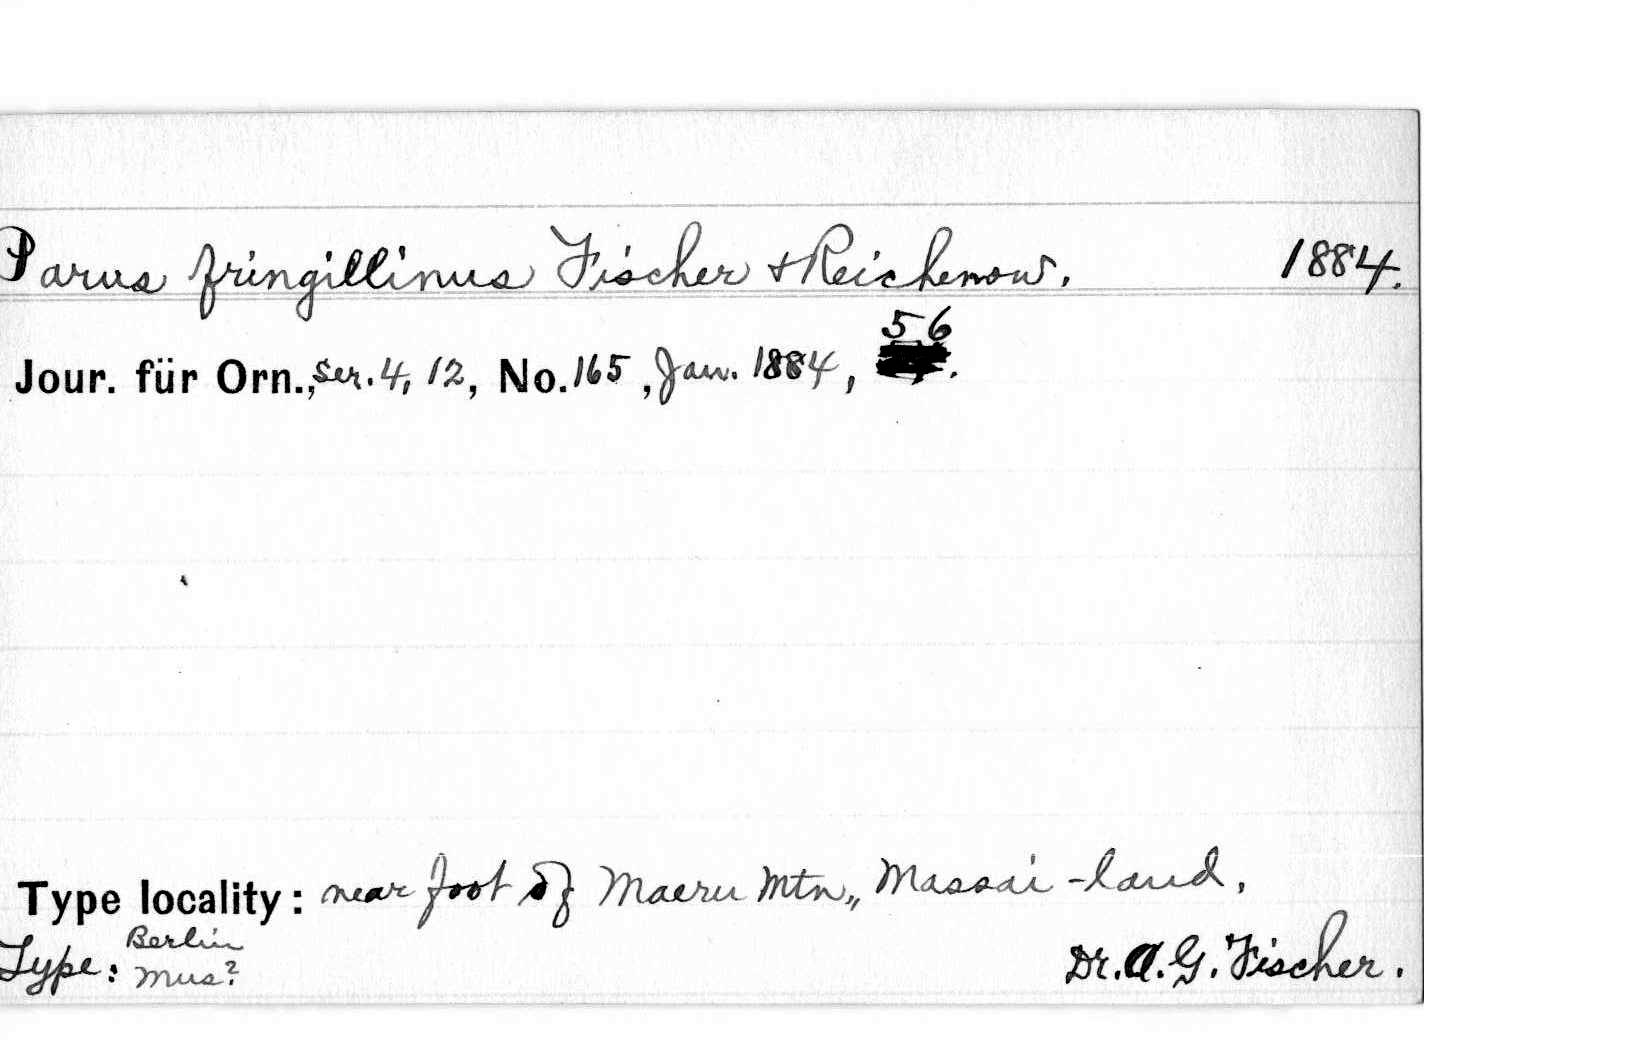 Parus fringillinus Fischer & Reichenow. 1884.
Jour. für Orn., ser. 4, 12, No. 165, Jan. 1884, 56.
Type locality: near foot of Maeru Mtn., Massai-land.
Type: Berlin Mus? Dr. A. G. Fischer.